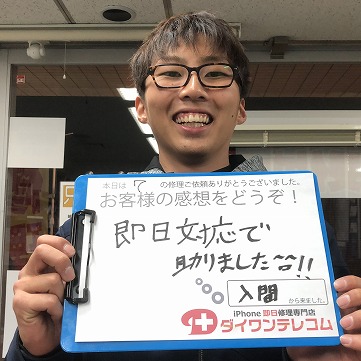 本日は 7 の修理ご依頼ありがとうございました。
お客様の感想をどうぞ！
即日対応で
助りました〜!!
入間 から来ました。
iPhone 即日修理専門店
ダイワンテレコム